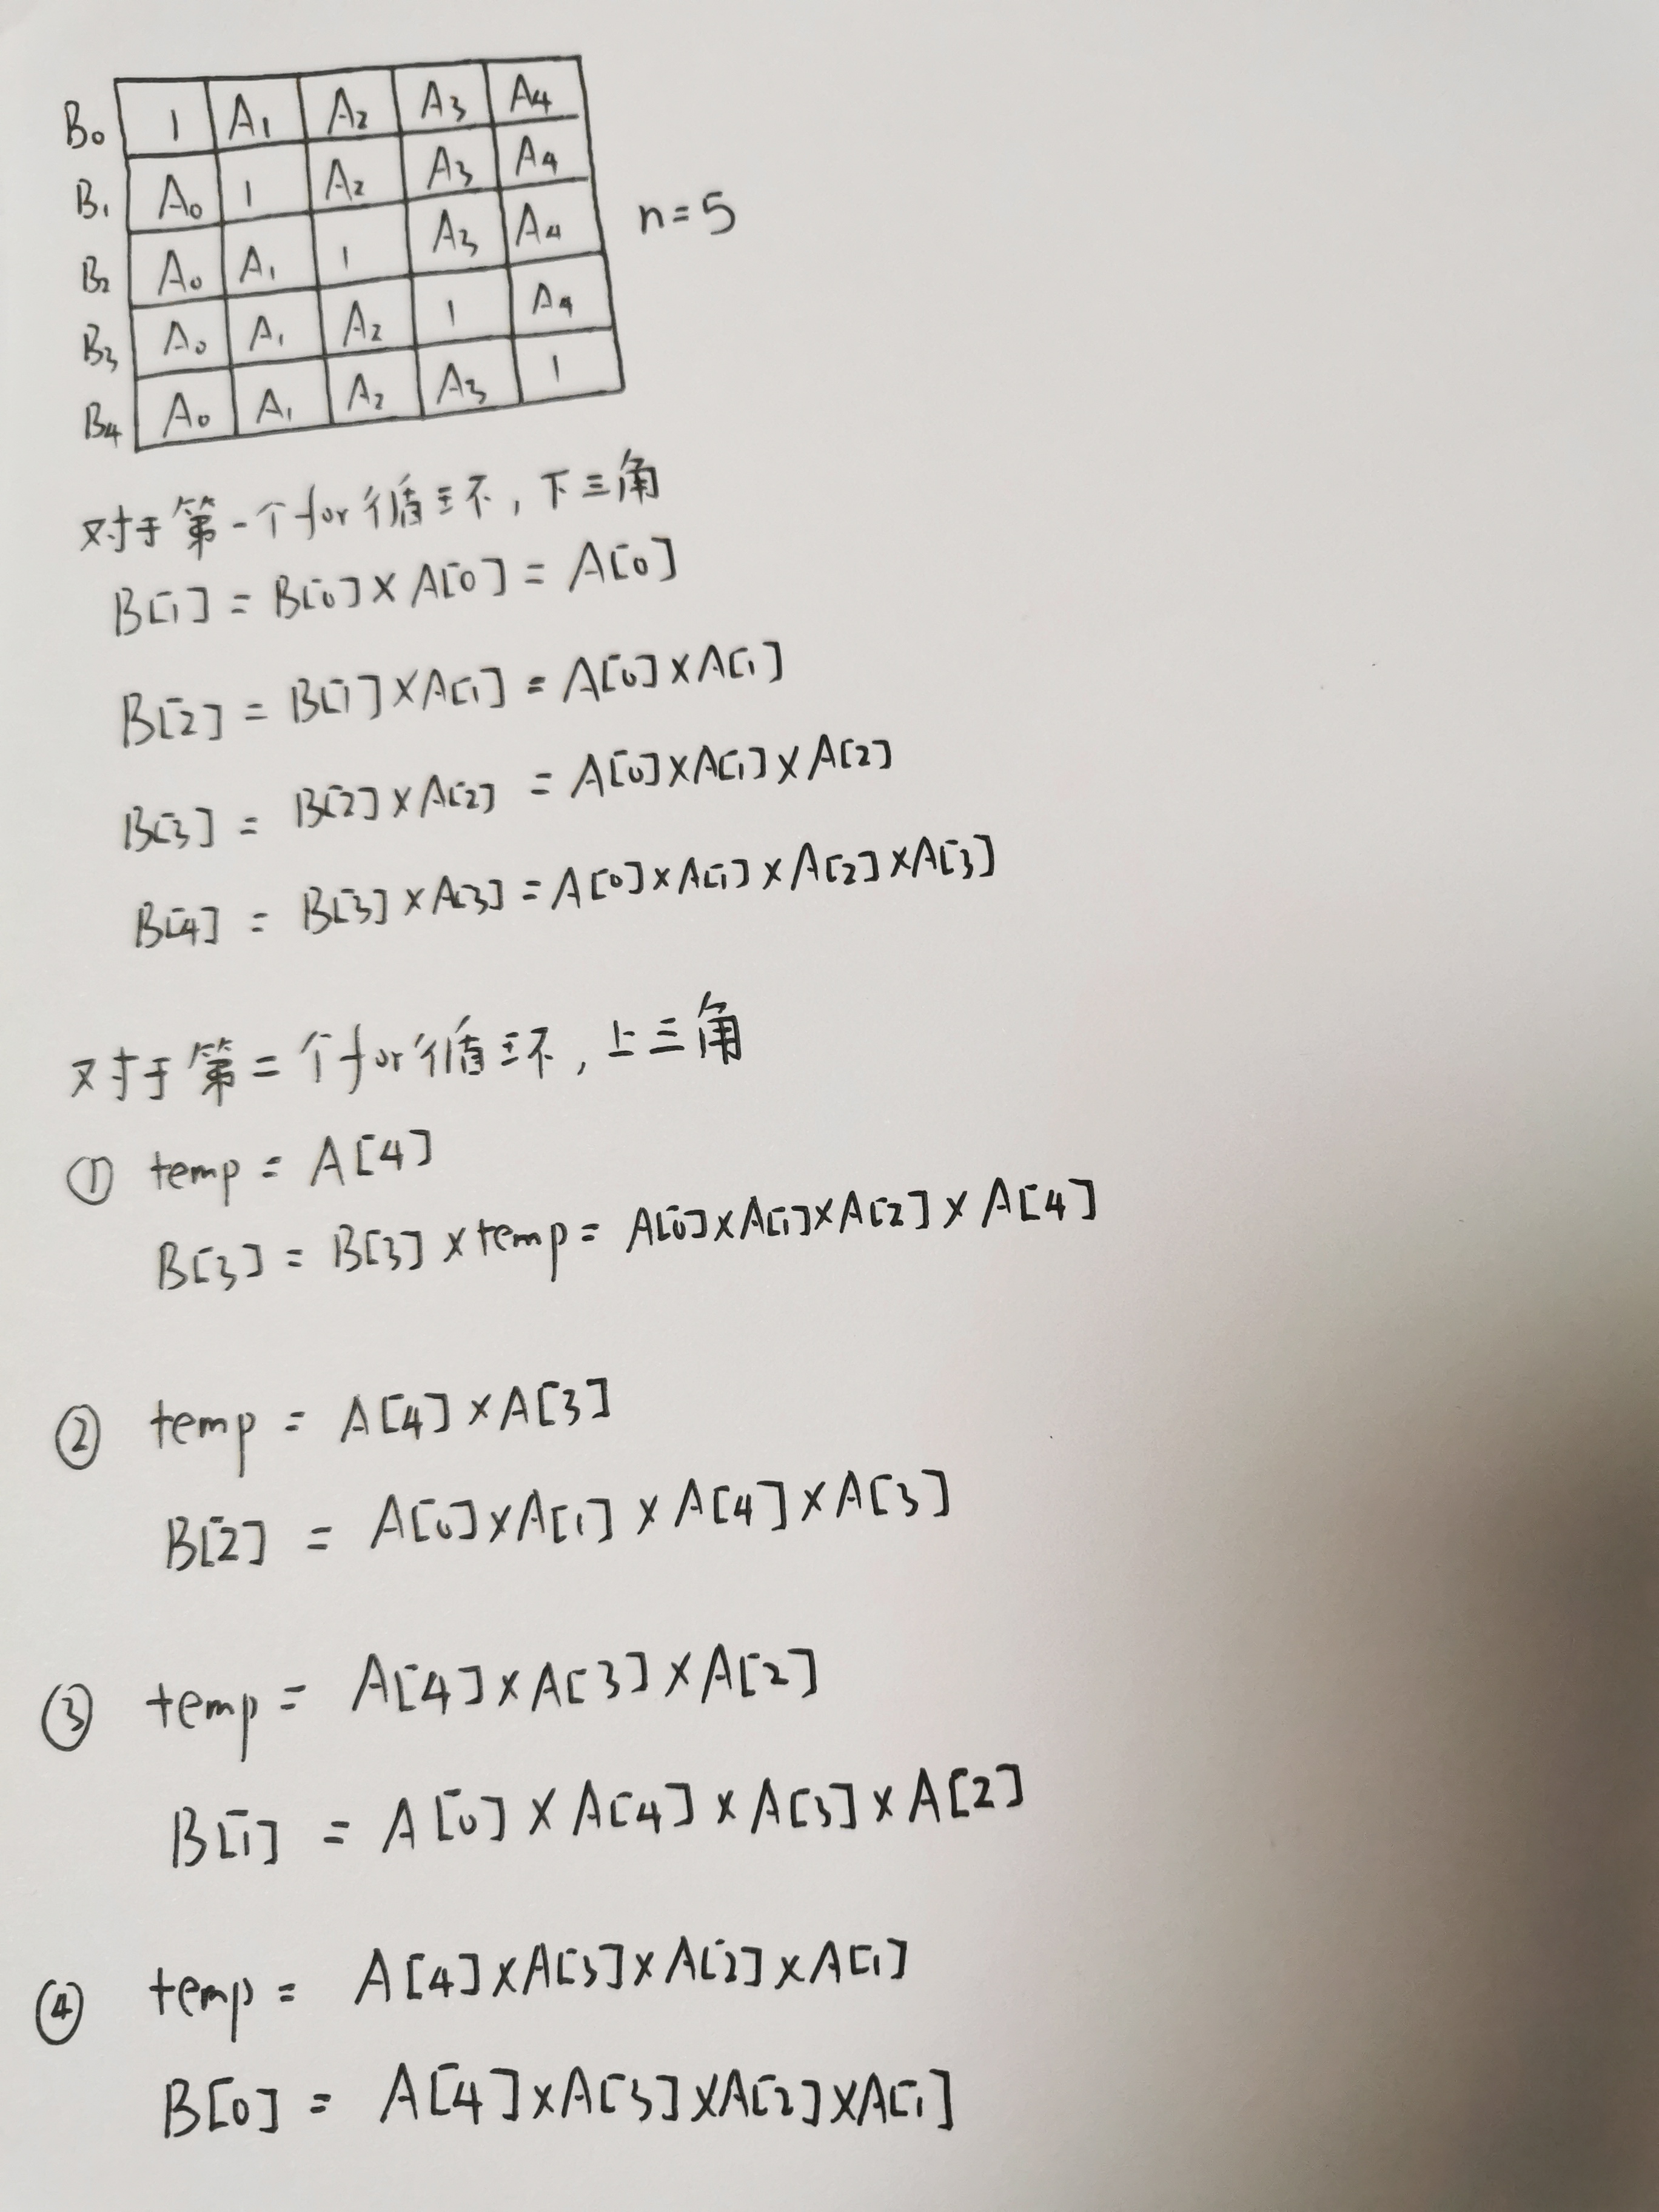 B₀ 1 A₁ A₂ A₃ A₄
B₁ A₀ 1 A₂ A₃ A₄
n=5
B₂ A₀ A₁ 1 A₃ A₄
B₃ A₀ A₁ A₂ 1 A₄
B₄ A₀ A₁ A₂ A₃ 1
对于第一个for循环，下三角
B[1] = B[0]×A[0] = A[0]
B[2] = B[1]×A[1] = A[0]×A[1]
B[3] = B[2]×A[2] = A[0]×A[1]×A[2]
B[4] = B[3]×A[3] = A[0]×A[1]×A[2]×A[3]
对于第二个for循环，上三角
① temp = A[4]
B[3] = B[3]×temp = A[0]×A[1]×A[2]×A[4]
② temp = A[4]×A[3]
B[2] = A[0]×A[1]×A[4]×A[3]
③ temp = A[4]×A[3]×A[2]
B[1] = A[0]×A[4]×A[3]×A[2]
④ temp = A[4]×A[3]×A[2]×A[1]
B[0] = A[4]×A[3]×A[2]×A[1]